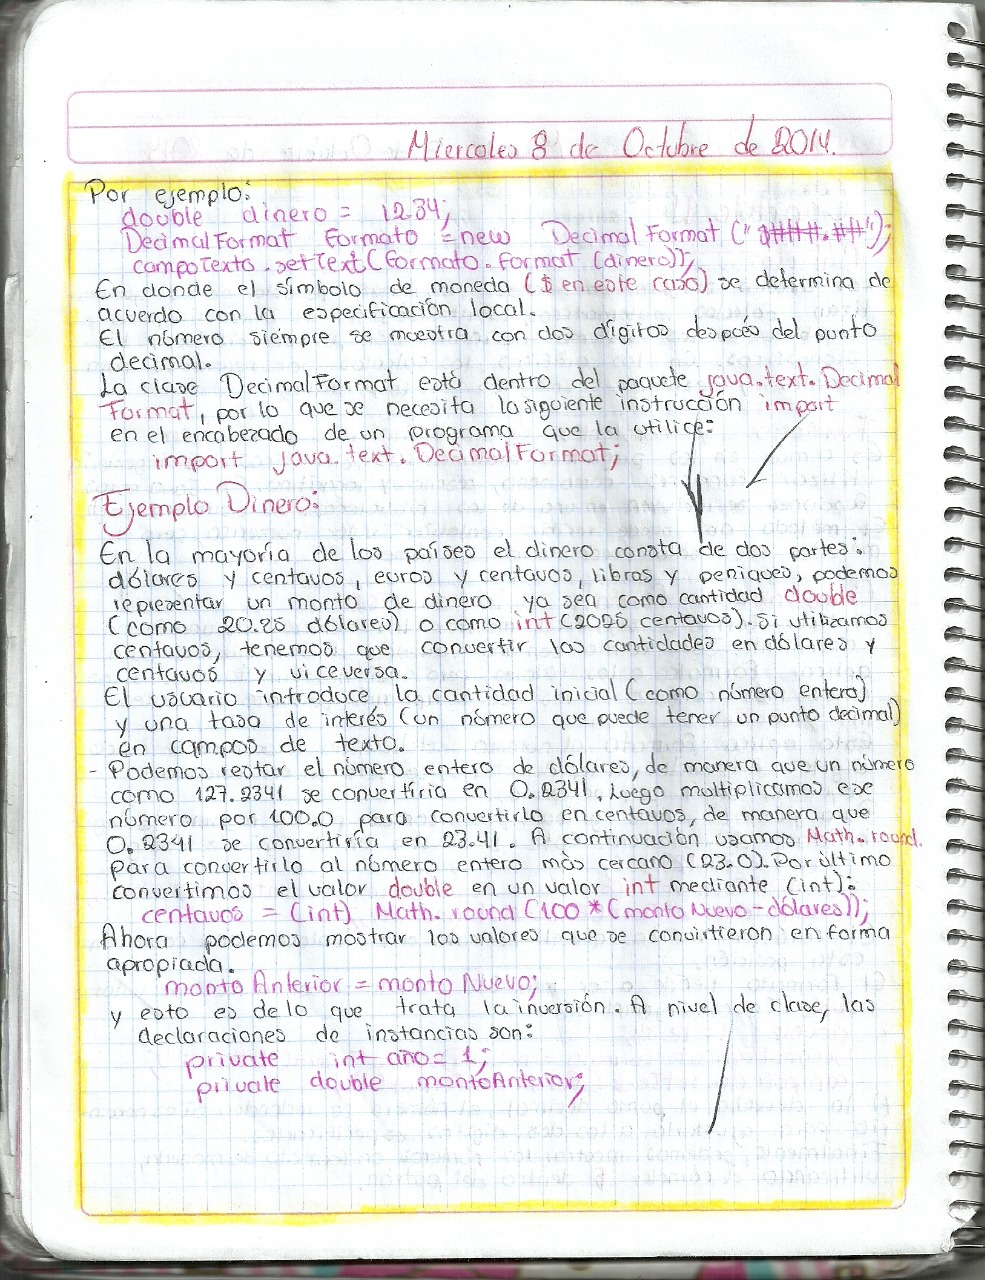 Miercoles 8 de Octubre de 2014.
Por ejemplo:
double dinero = 12.34;
DecimalFormat formato = new DecimalFormat ("$###.##");
campoTexto.setText(formato.format (dinero));
En donde el símbolo de moneda ($ en este caso) se determina de
acuerdo con la especificación local.
El número siempre se muestra con dos dígitos después del punto
decimal.
La clase DecimalFormat está dentro del paquete java.text.Decimal
Format, por lo que se necesita la siguiente instrucción import
en el encabezado de un programa que la utilice:
import java.text.DecimalFormat;
Ejemplo Dinero:
En la mayoría de los países el dinero consta de dos partes:
dólares y centavos, euros y centavos, libras y peniques, podemos
representar un monto de dinero ya sea como cantidad double
(como 20.25 dólares) o como int (2025 centavos). Si utilizamos
centavos, tenemos que convertir las cantidades en dólares y
centavos y viceversa.
El usuario introduce la cantidad inicial (como número entero)
y una tasa de interés (un número que puede tener un punto decimal)
en campos de texto.
- Podemos restar el número entero de dólares, de manera que un número
como 127.2341 se convertiría en 0.2341. Luego multiplicamos ese
número por 100.0 para convertirlo en centavos, de manera que
0.2341 se convertiría en 23.41. A continuación usamos Math.round.
para convertirlo al número entero más cercano (23.0). Por último
convertimos el valor double en un valor int mediante (int):
centavos = (int) Math.round (100 * (monto Nuevo - dólares));
Ahora podemos mostrar los valores que se convirtieron en forma
apropiada.
monto Anterior = monto Nuevo;
y esto es de lo que trata la inversión. A nivel de clase, las
declaraciones de instancias son:
private int año = 1;
private double montoAnterior;